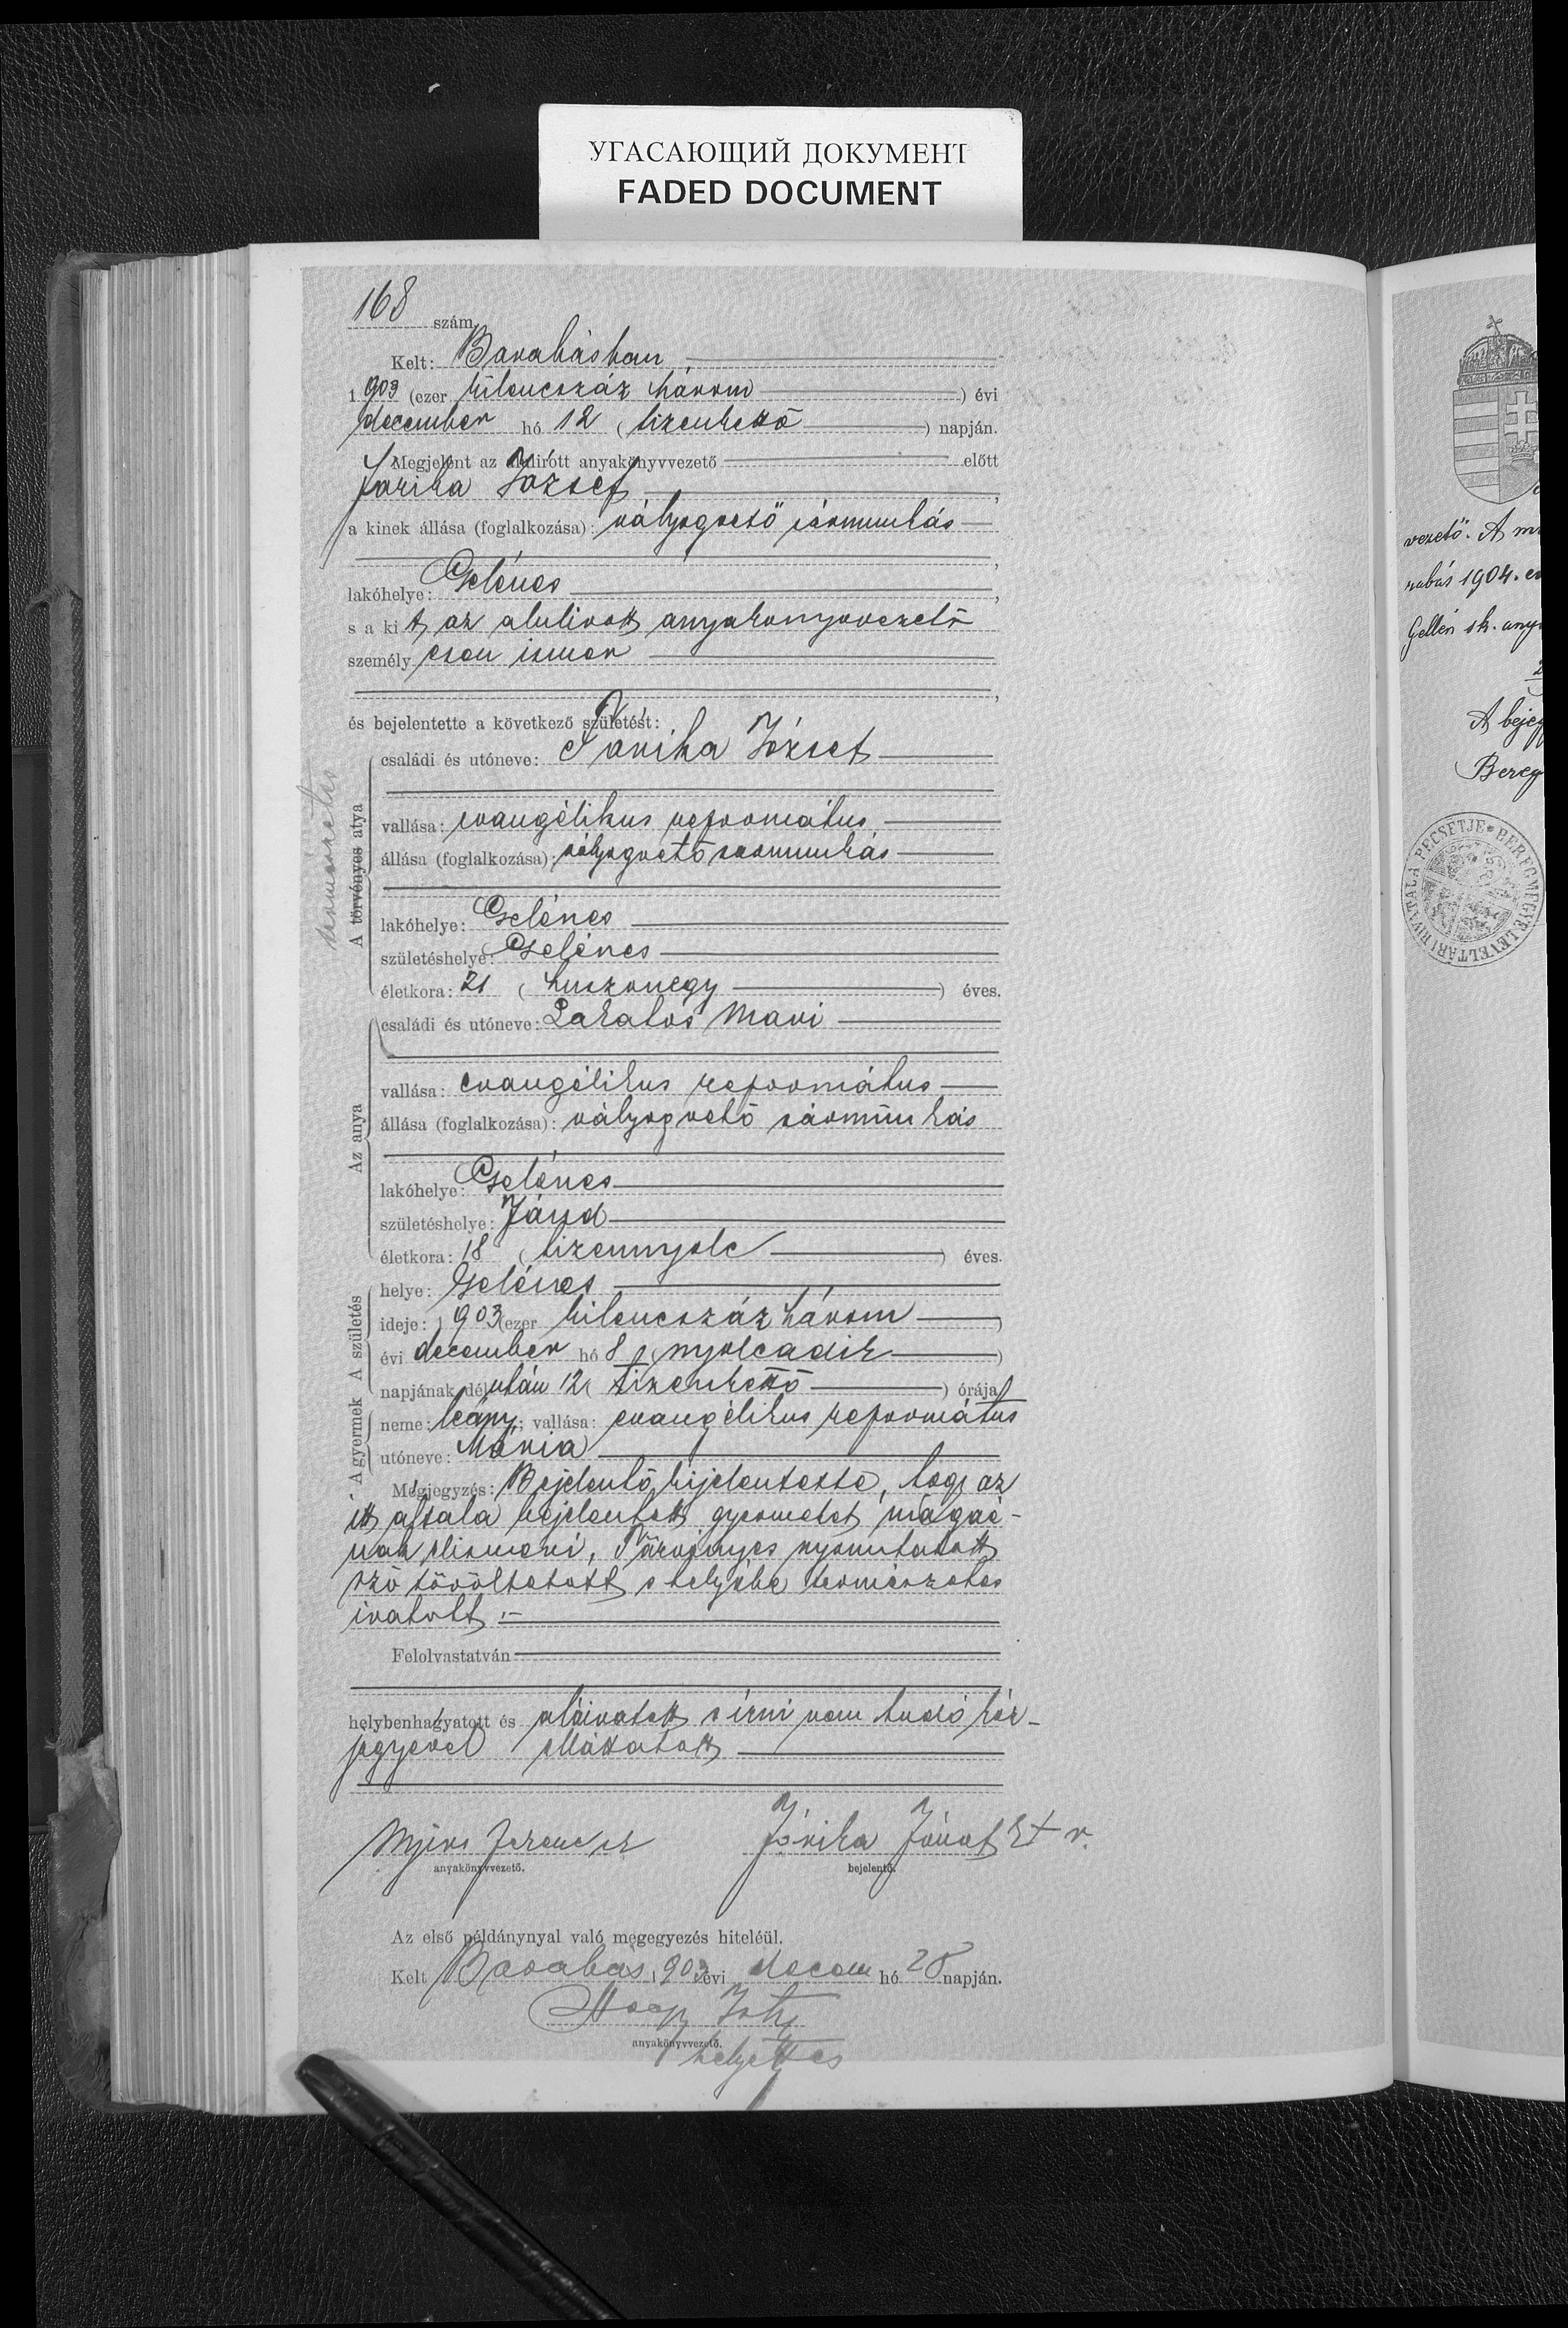 УГАСАЮЩИЙ ДОКУМЕНТ
FADED DOCUMENT
168 szám.
Kelt: Barabásban
1903 (ezer kilencszáz három) évi
december hó 12 (tizenkettő) napján.
Megjelent az alulirótt anyakönyvvezető előtt
József,
a kinek állása (foglalkozása): vályogvető sármunkás
lakóhelye: Gelénes,
s a kit az alulirott anyakönyvvezető
személyesen ismer
és bejelentette a következő születést:
természetes
A törvényes atya
családi és utóneve: József
vallása: evangélikus református
állása (foglalkozása): vályogvető sármunkás
lakóhelye: Gelénes
születéshelye: Gelénes
életkora: 21 (huszonegy) éves.
Az anya
családi és utóneve: Lakatos Mari
vallása: evangélikus református
állása (foglalkozása): vályogvető sármunkás
lakóhelye: Gelénes
születéshelye: Jánd
életkora: 18 (tizennyolc) éves.
A születés
helye: Gelénes
ideje: 1903 (ezer kilencszáz három)
évi december hó 8 (nyolcadik)
napjának délután 12 (tizenkettő) órája
A gyermek
neme: leány; vallása: evangélikus református
utóneve: Mária
Megjegyzés: Bejelentő kijelentette, hogy az
itt általa bejelentett gyermeket magáé-
nak elismeri, Törvényes nyomtatott
szó töröltetett s helyébe természetes
iratott.-
Felolvastatván
helybenhagyatott és aláiratott s írni nem tudó kéz-
jegyével elláttatott
Ferenc sk
anyakönyvvezető. bejelentő.
Az első példánynyal való megegyezés hiteléül.
Kelt Barabás 1903 évi decem hó 28 napján.
anyakönyvvezető.
helyettes
vezető. A
1904.
Gellén sk.
A
Bereg
BEREGMEGYE LEVÉLTÁRI HIVATALA PECSÉTJE